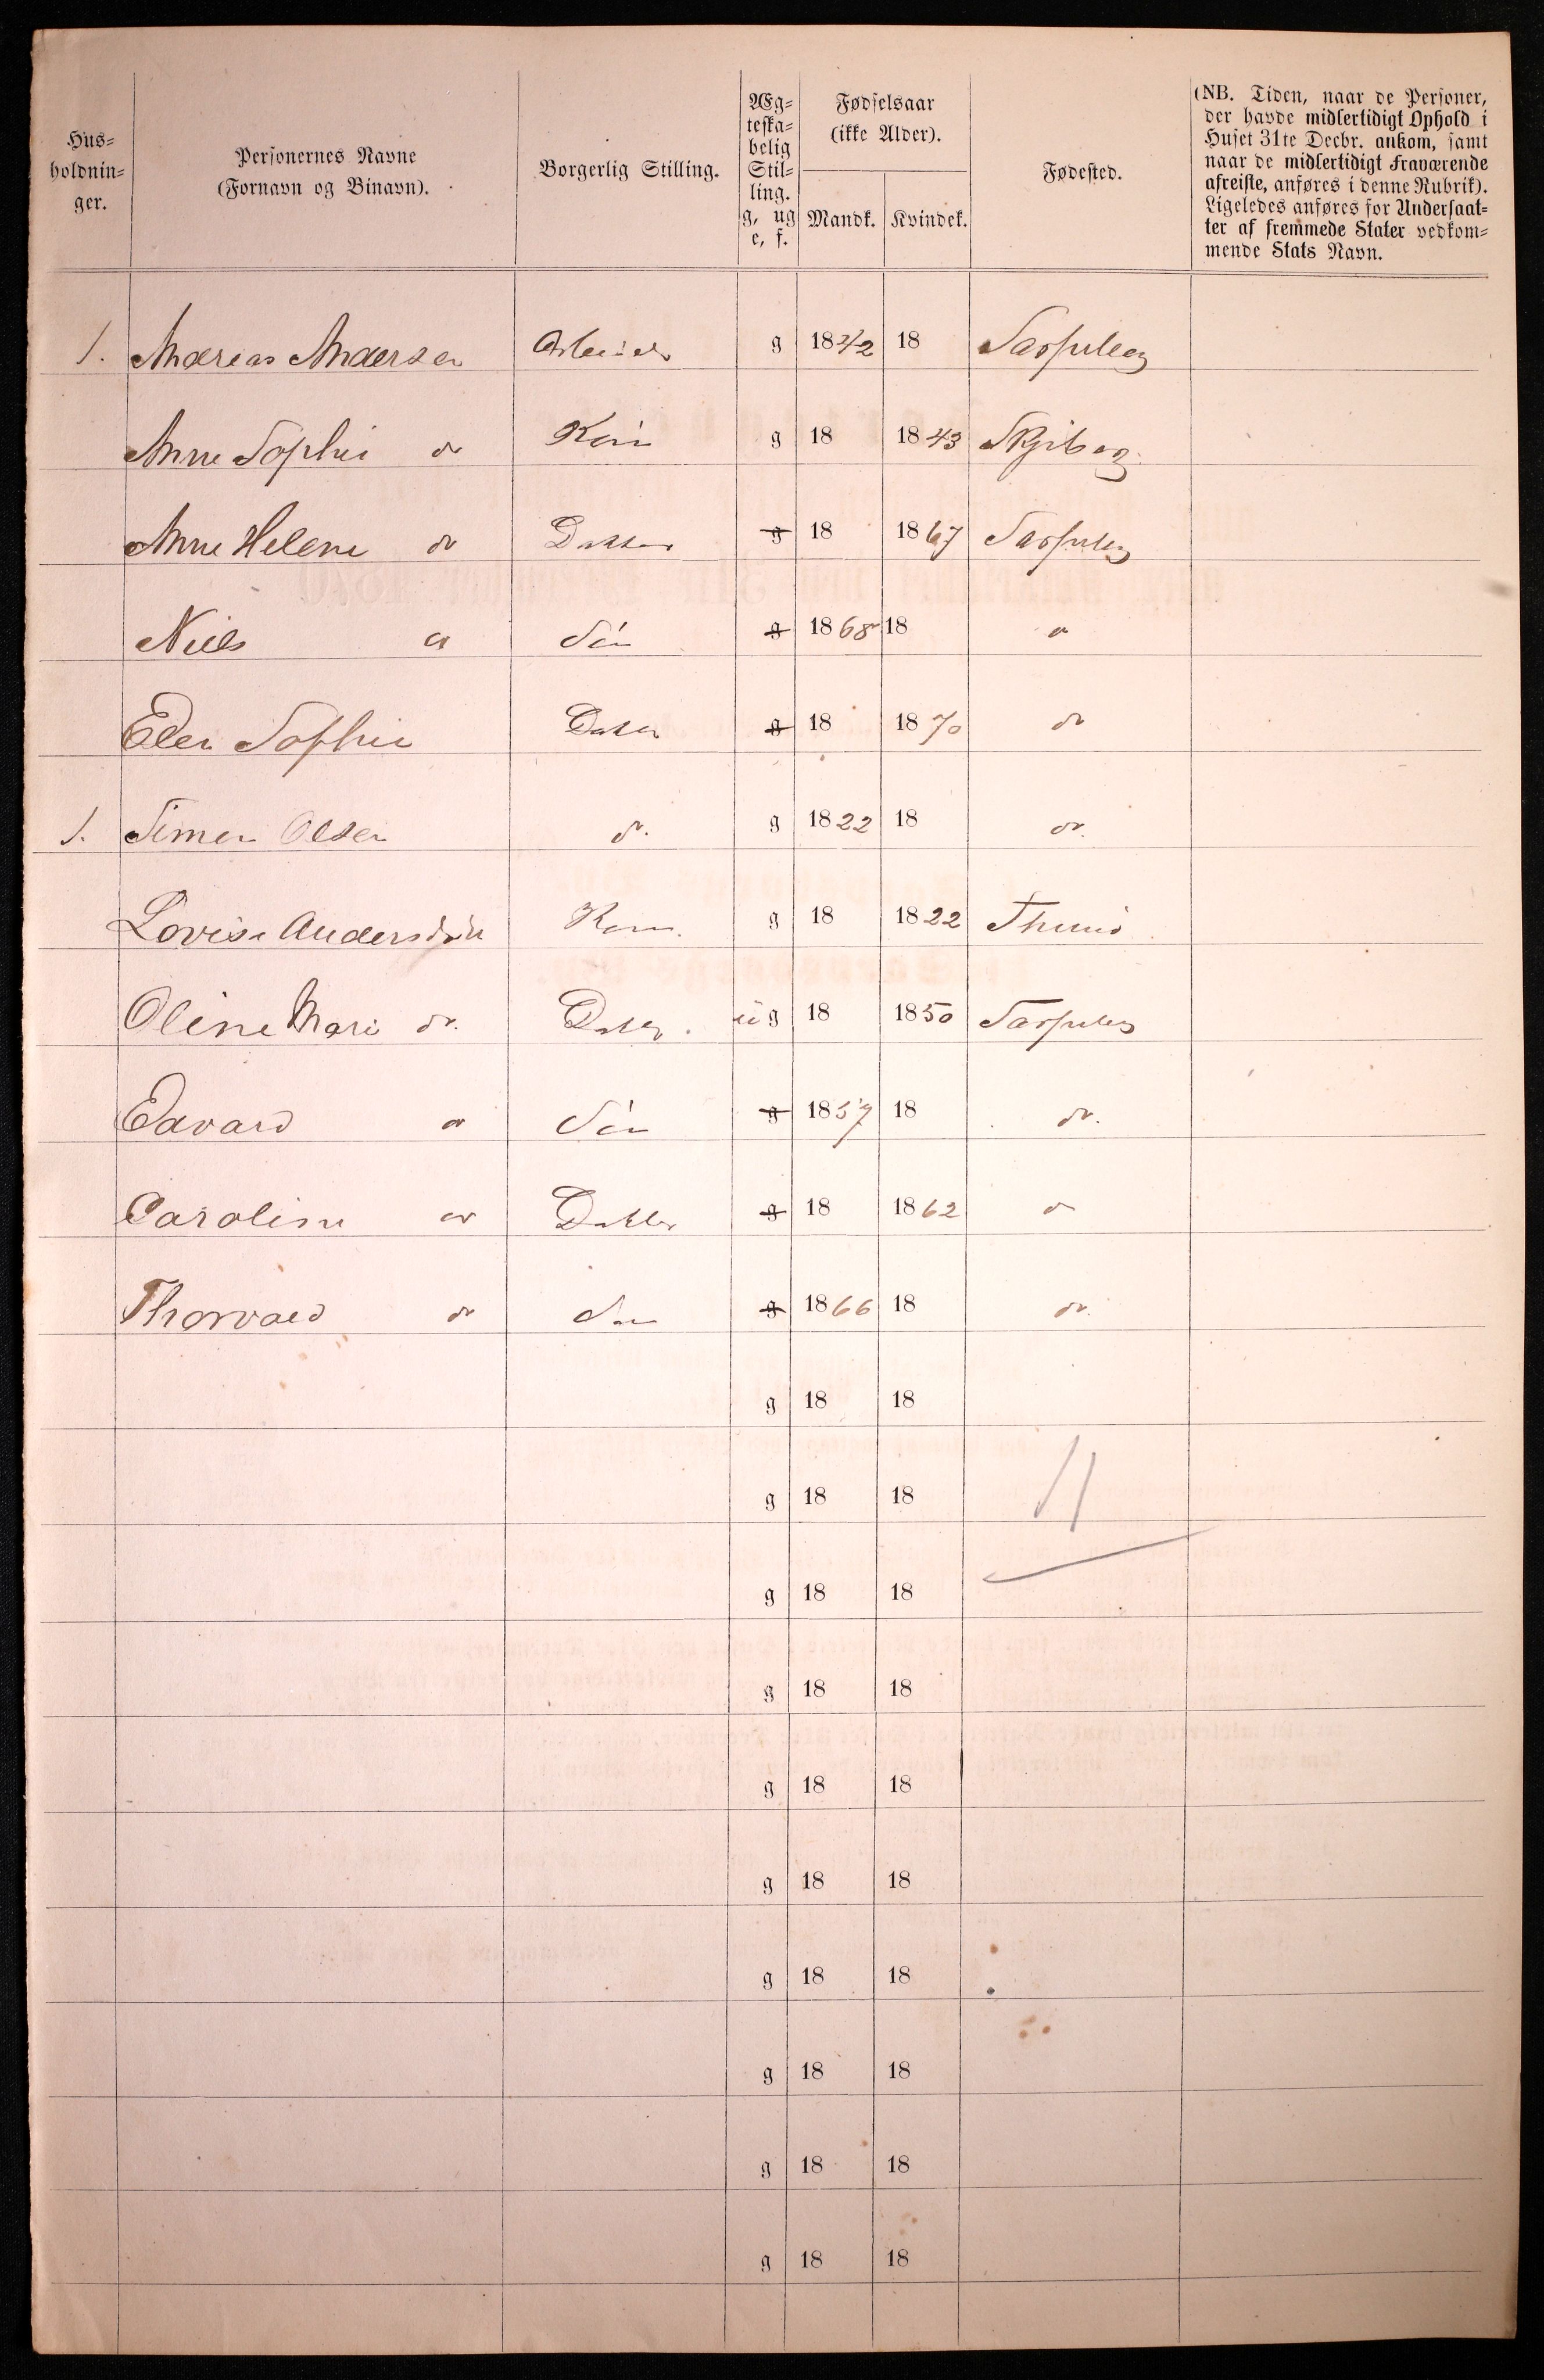 Hus-
holdnin-
ger.
Personernes Navne
(Fornavn og Binavn).
Borgerlig Stilling.
Æg-
teska-
belig
Stil-
ling.
g, ug
e, f.
Fødselsaar
(ikke Alder).
Mandk. Kvindek.
Fødested.
(NB. Tiden, naar de Personer,
der havde midlertidigt Ophold i
Huset 31te Decbr. ankom, samt
naar de midlertidigt Fraværende
afreiste, anføres i denne Rubrik).
Ligeledes anføres for Undersaat-
ter af fremmede Stater vedkom-
mende Stats Navn.
1. Andreas Andersen Arbeider g 1842 18 Sarpsborg
Anne Sophie do Kone g 18 1843 Skjeberg
Anne Helene do Datter g 18 1867 Sarpsborg
Niels do Søn g 1868 18 do
Elen Sophie Datter g 18 1870 do
1. Simen Olsen do. g 1822 18 do.
Lovise Andersdatter Kone. g 18 1822 Thunø
Oline Mari do. Datter. ug 18 1850 Sarpsborg
Edvard do Søn g 1857 18 do.
Caroline do Datter g 18 1862 do
Thorvald do Søn g 1866 18 do.
g 18 18
g 18 18 11
g 18 18
g 18 18
g 18 18
g 18 18
g 18 18
g 18 18
g 18 18
g 18 18